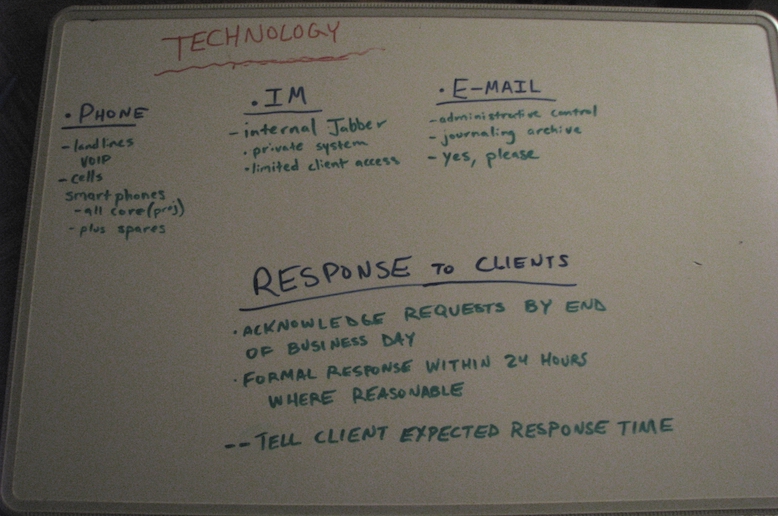 TECHNOLOGY
• PHONE
- landlines
VOIP
- cells
smartphones
- all core (proj)
- plus spares
• IM
- internal Jabber
• private system
• limited client access
• E-MAIL
- administrative control
- journaling archive
- yes, please
RESPONSE TO CLIENTS
• ACKNOWLEDGE REQUESTS BY END
OF BUSINESS DAY
• FORMAL RESPONSE WITHIN 24 HOURS
WHERE REASONABLE
-- TELL CLIENT EXPECTED RESPONSE TIME